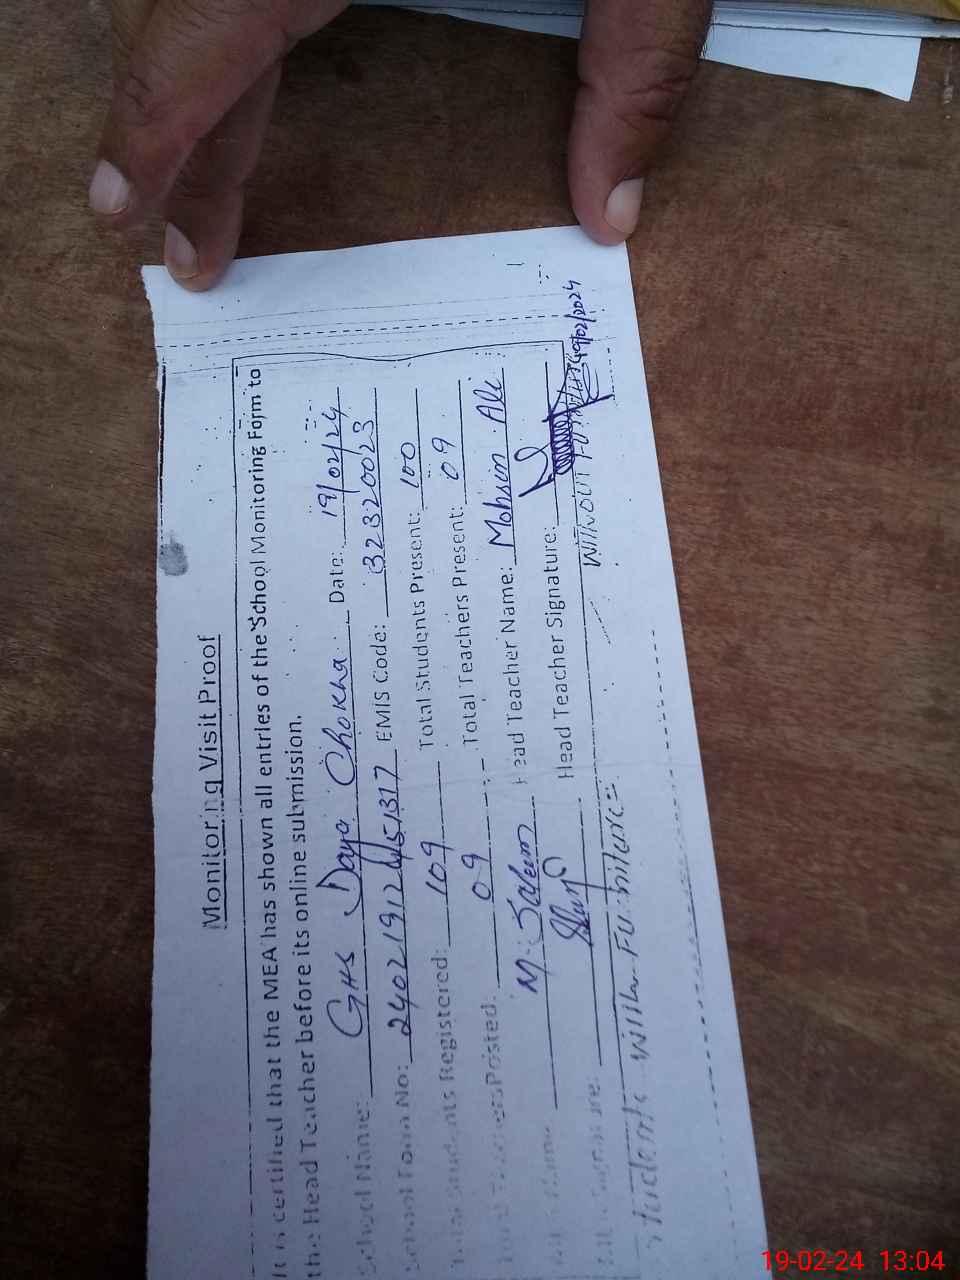 Monitoring Visit Proof
It is certified that the MEA has shown all entries of the School Monitoring Form to
the Head Teacher before its online submission.
School Name: GHS Daya Chokha Date: 19/02/24
School Form No: EMIS Code: 32320023
Total Students Registered: 109 Total Students Present: 100
Posted: 09 Total Teachers Present: 09
M. Saleem Head Teacher Name: Mohsin Ali
Head Teacher Signature:
19/02/2024
Students With Furniture= Without
19-02-24 13:04